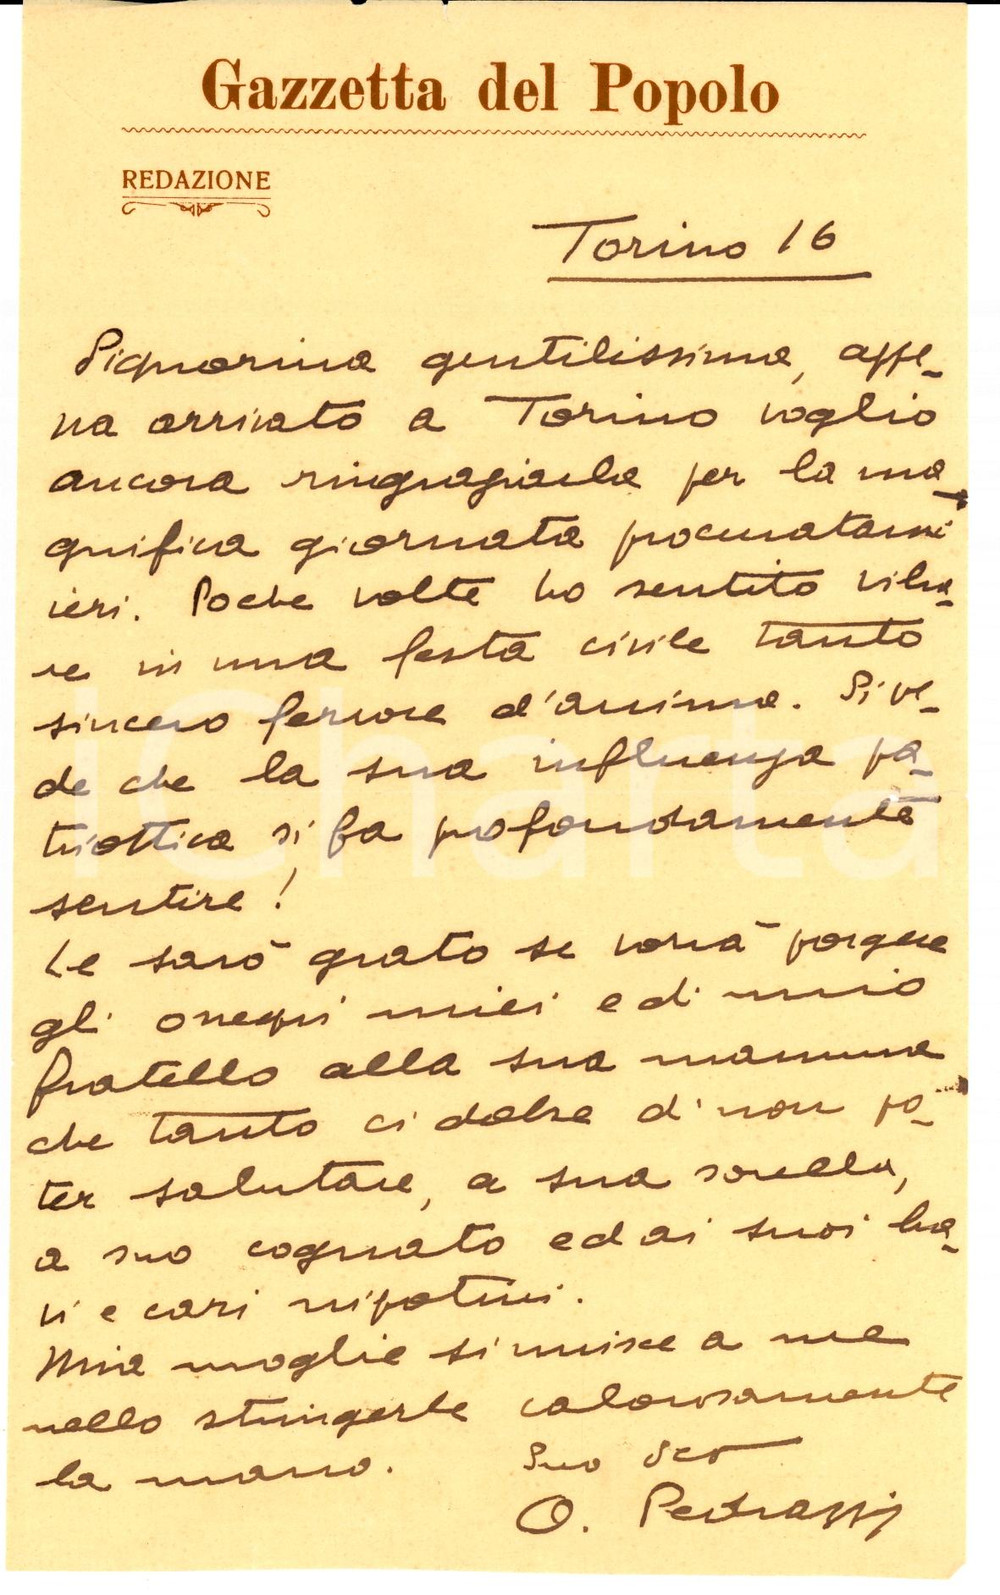 Gazzetta del Popolo
REDAZIONE
Torino 16
Signorina gentilissima, appe-
na arrivato a Torino voglio
ancora ringraziarla per la ma-
gnifica giornata procuratami
ieri. Poche volte ho sentito vibra-
re in una festa civile tanto
sincero fervore d'anima. Si ve-
de che la sua influenza pa-
triottica si fa profondamente
sentire!
Le sarò grato se vorrà porgere
gli ossequi miei e di mio
fratello alla sua mamma
che tanto ci dolse di non po-
ter salutare, a sua sorella,
a suo cognato ed ai suoi bra-
vi e cari nipotini.
Mia moglie si unisce a me
nello stringerle calorosamente
la mano.
Suo
O. Pedrazzi
iCharta